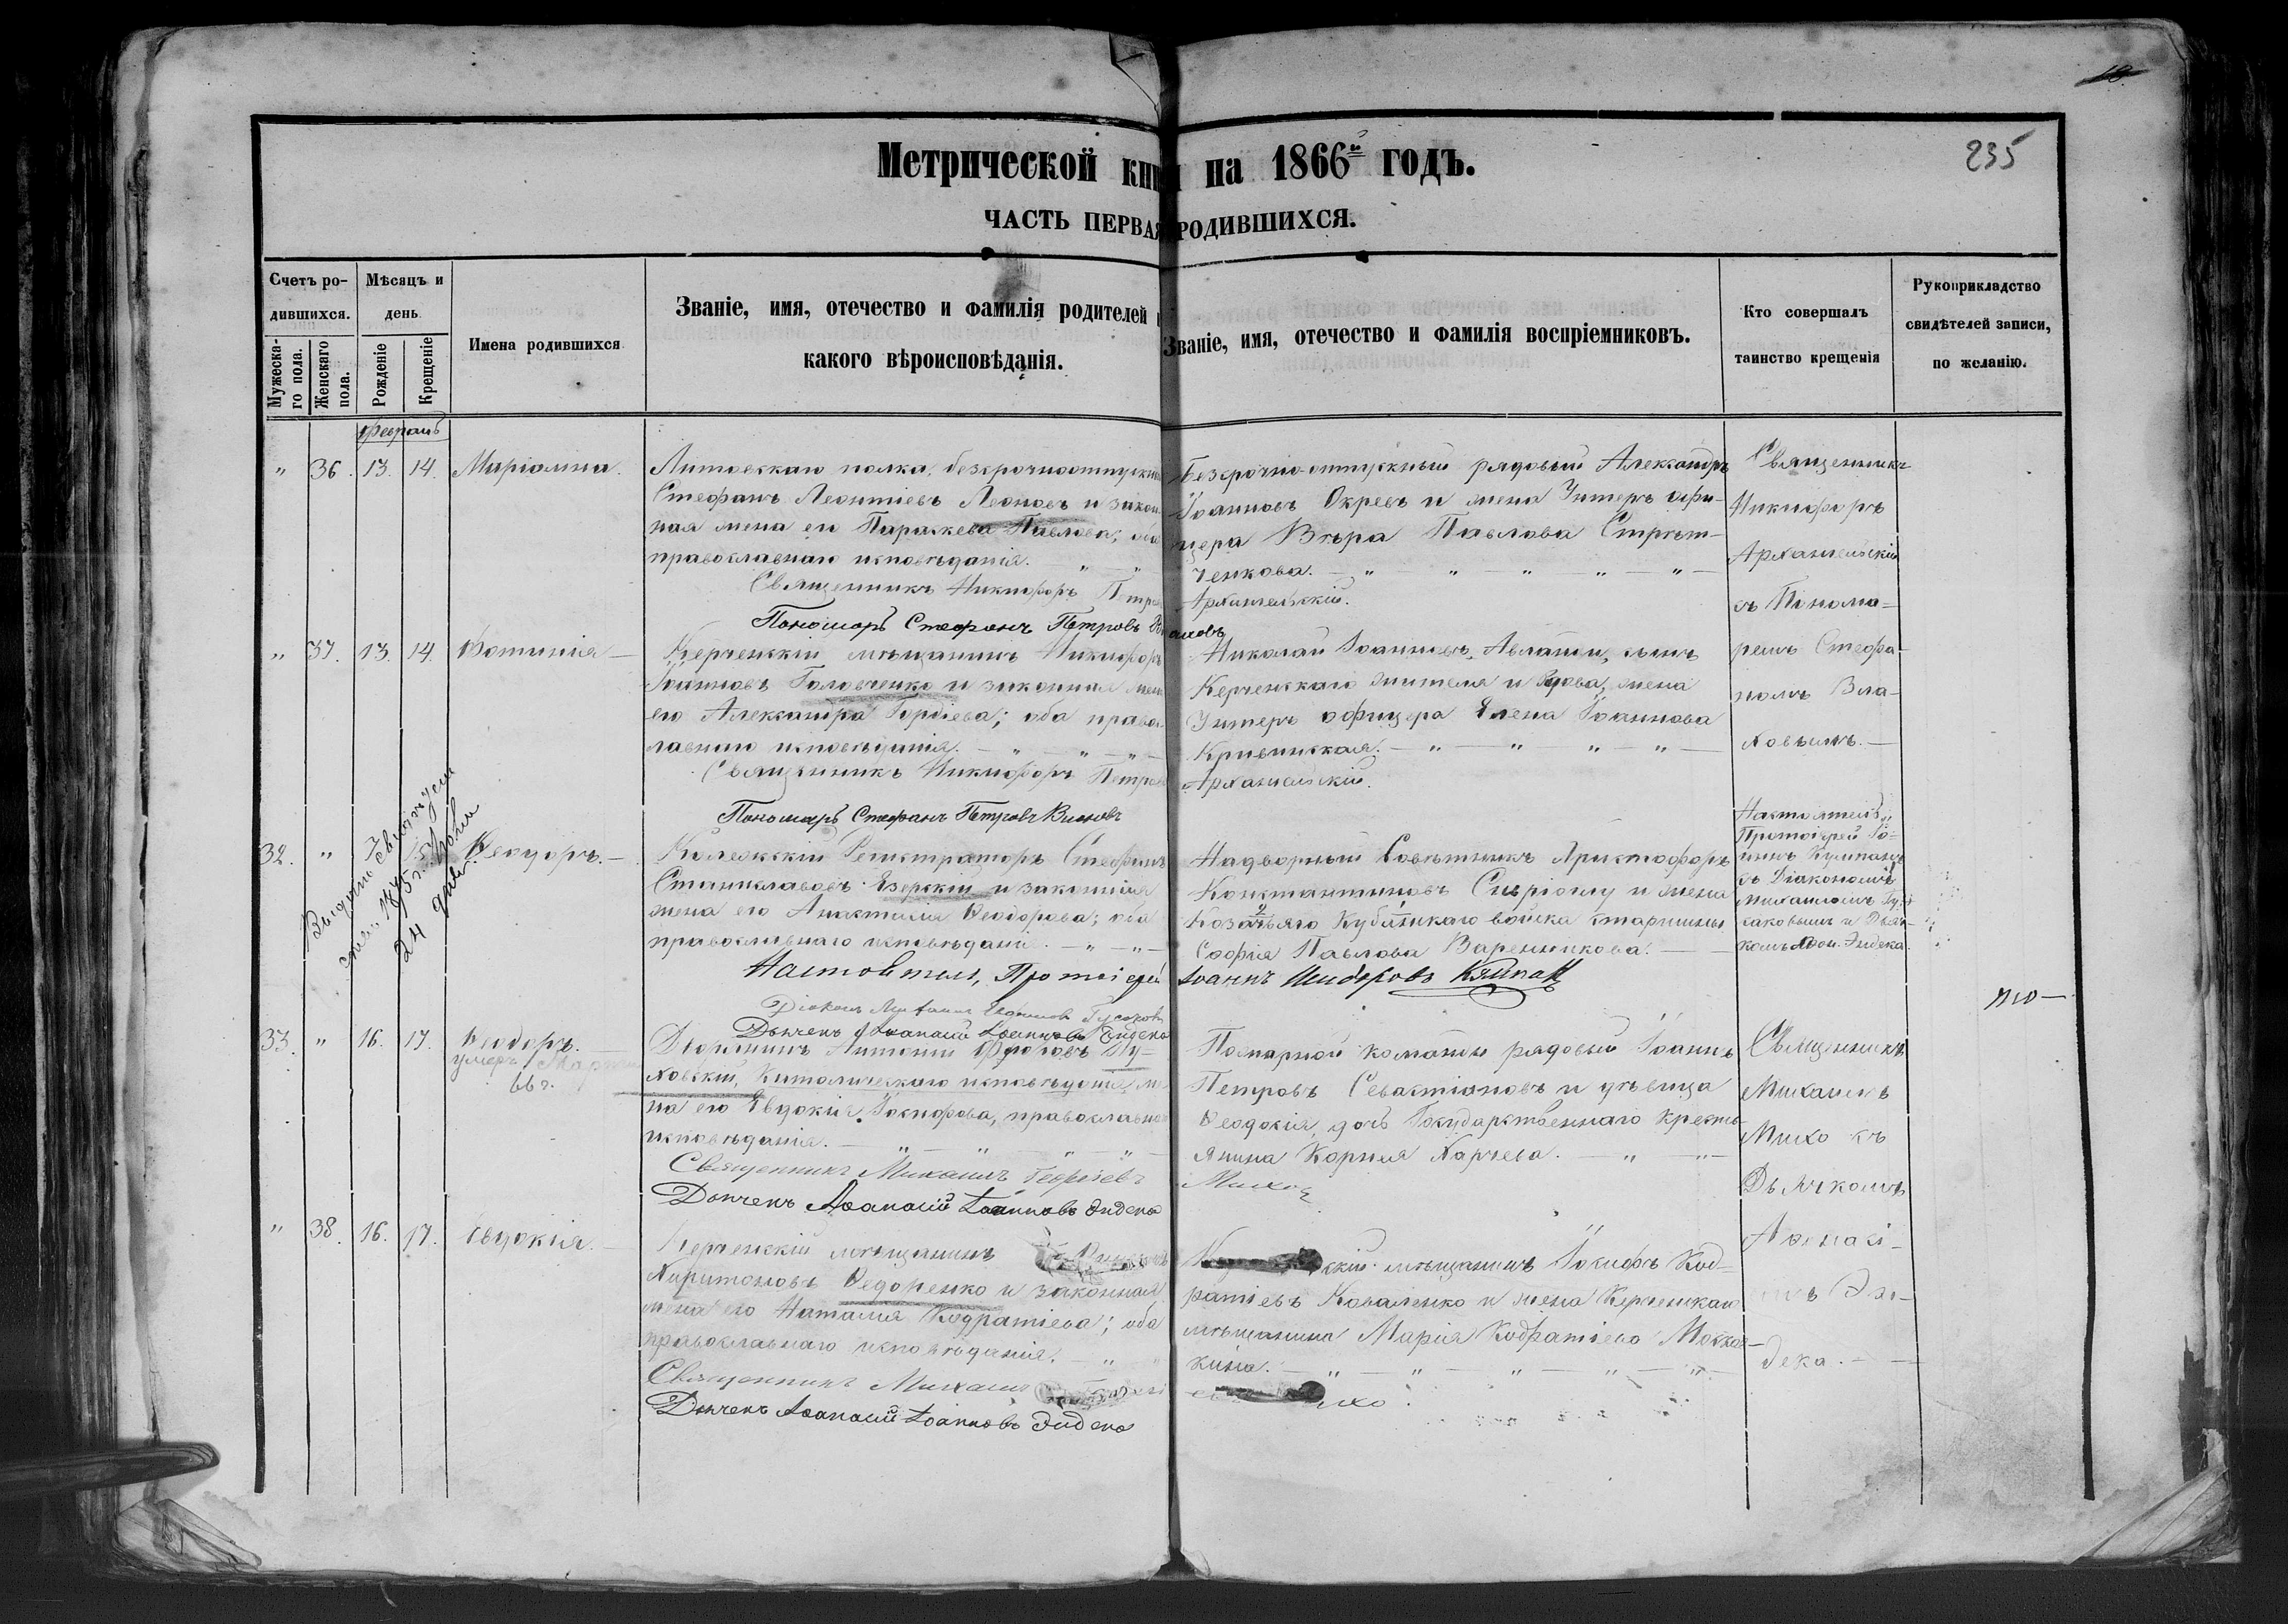 18.
235
Метрической книги на 1866й годъ.
ЧАСТЬ ПЕРВАЯ РОДИВШИХСЯ.
Счетъ ро-
дившихся.
Мужеска-
го пола.
Женскаго
пола.
Мѣсяцъ и
день
Рожденіе
Крещеніе
Имена родившихся
Званіе, имя, отечество и фамилія родителей и
какого вѣроисповѣданія.
Званіе, имя, отечество и фамилія воспріемниковъ.
Кто совершалъ
таинство крещенія
Рукоприкладство
свидѣтелей записи,
по желанію.
„ 36. 13. 14. Маріамна.
Литовскаго полка, безсрочноотпускный
Стефанъ Леонтіевъ Леоновъ и закон-
ная жена его Параскева Павлова; оба
православнаго исповѣданія. „ „
Священникъ Никифоръ Петровъ
Пономарь Стефанъ Петровъ
Безсрочно-отпускный рядовый Александръ
Іоанновъ Окревъ и жена Унтеръ офи-
цера Вѣра Павлова Стрѣт-
ченкова. „ „ „ „ „
Архангельскій.
Священникъ
Никифоръ
Архангельскій
съ Понома-
ремъ Стефа-
номъ Вла-
ховымъ.
„ 37. 13. 14. Фотинія
Керченскій мѣщанинъ Никифоръ
Іоанновъ Головченко и законная жена
его Александра Гордіева; оба правос-
лавнаго исповѣданія. „ „ „
Священникъ Никифоръ Петровъ
Пономарь Стефанъ Петровъ
Николай Іоанновъ, сынъ
Керченскаго жителя и вдова, жена
Унтеръ офицера Елена Іоаннова
Кривинская. „ „ „ „
Архангельскій.
32. „ Ѳеодоръ.
Выдано
1875 г.
24 дня.
Колежскій Регистраторъ Стефанъ
Станиславовъ Езерскій и законная
жена его Анастасія Ѳеодорова; оба
православнаго исповѣданія. „ „
Настоятель, Протоіерей
Діаконъ Михаилъ Гусаковъ
Дьячекъ Аѳанасій Іоанновъ Эндека
Надворный Совѣтникъ Аристофоръ
Константиновъ и жена
Козачьяго Кубанскаго войска старшины
Софія Павлова Варенникова.
Іоаннъ Кумпанъ
Настоятель,
Протоіерей Іо-
аннъ Кумпанъ
съ Діакономъ
Михаиломъ Гу-
саковымъ и Дьяч-
комъ Аѳан. Эндека.
33. „ 16. 17. Ѳеодоръ.
умеръ
66 г.
Дворянинъ Антоній
ховскій, Католическаго исповѣданія, же-
на его Евдокія Іосифова, православнаго
исповѣданія. „ „ „ „
Священникъ Михаилъ Георгіевъ
Дьячекъ Аѳанасій Іоанновъ Эндека
Пожарной команды рядовый Іоаннъ
Петровъ Севастіановъ и дѣвица
Ѳеодосія, дочь Государственнаго кресть-
янина Корнія Карчева. „ „
Михо
Священникъ
Михаилъ
Михо съ
Дьячкомъ
Аѳанасі-
емъ Эн-
дека.
„ 38. 16. 17. Евдокія.
Керченскій мѣщанинъ
Харитоновъ Ѳедоренко и законная
жена его Наталія Кодратіева; оба
православнаго исповѣданія. „ „
Священникъ Михаилъ
Дьячекъ Аѳанасій Іоанновъ Эндека
скій мѣщанинъ Іосифъ Код-
ратіевъ Коваленко и жена Керченскаго
мѣщанина Марія Кодратіева
кина. „ „ „ „ „
Михо.